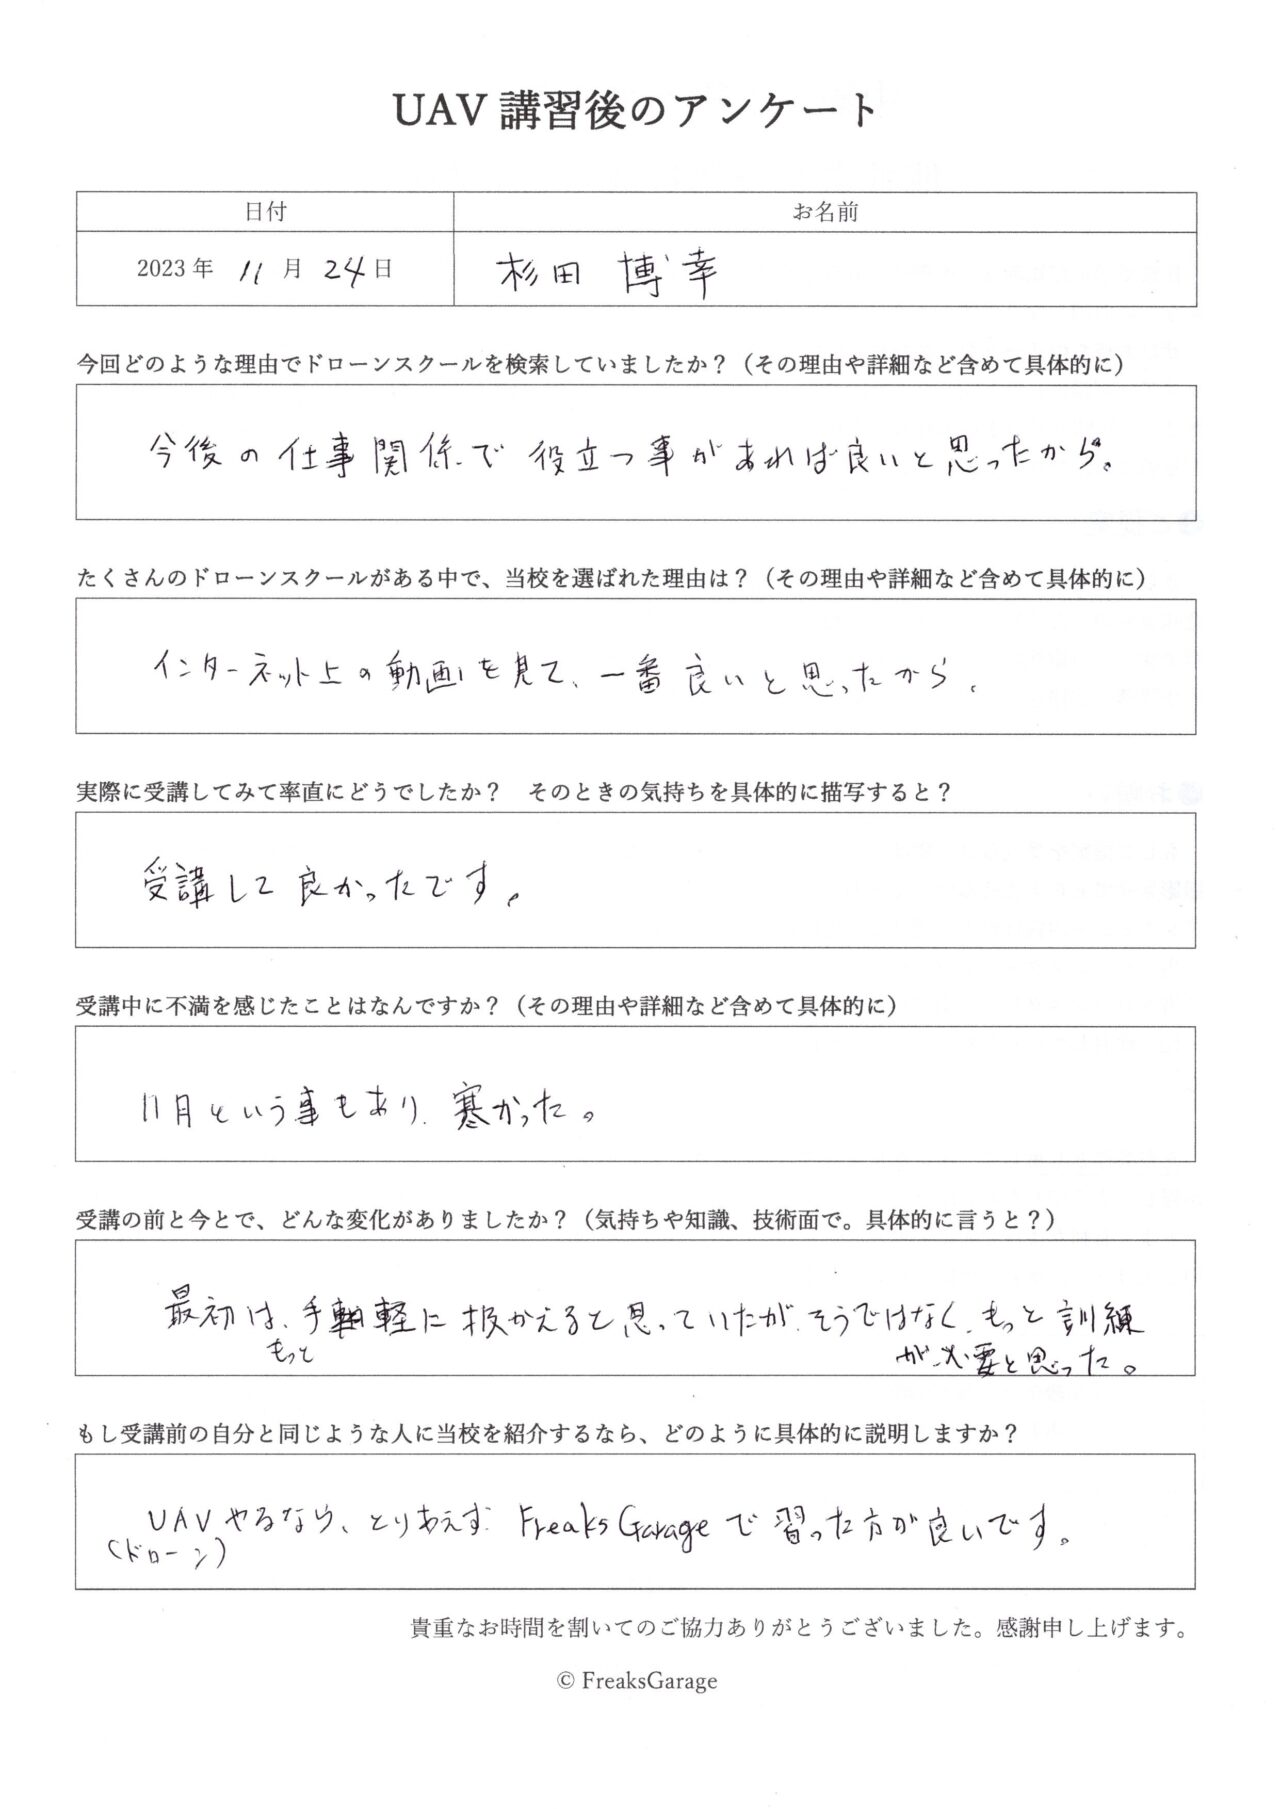 UAV 講習後のアンケート
日付 お名前
2023 年 11 月 24 日 杉田 博幸
今回どのような理由でドローンスクールを検索していましたか？（その理由や詳細など含めて具体的に）
今後の仕事関係で役立つ事があれば良いと思ったから。
たくさんのドローンスクールがある中で、当校を選ばれた理由は？（その理由や詳細など含めて具体的に）
インターネット上の動画を見て、一番良いと思ったから。
実際に受講してみて率直にどうでしたか？　そのときの気持ちを具体的に描写すると？
受講して良かったです。
受講中に不満を感じたことはなんですか？（その理由や詳細など含めて具体的に）
11月という事もあり、寒かった。
受講の前と今とで、どんな変化がありましたか？（気持ちや知識、技術面で。具体的に言うと？）
最初は、手軽に扱かえると思っていたが、そうではなく、もっと訓練
もっと
が必要と思った。
もし受講前の自分と同じような人に当校を紹介するなら、どのように具体的に説明しますか？
UAVやるなら、とりあえず FreaksGarageで習った方が良いです。
（ドローン）
貴重なお時間を割いてのご協力ありがとうございました。感謝申し上げます。
© FreaksGarage